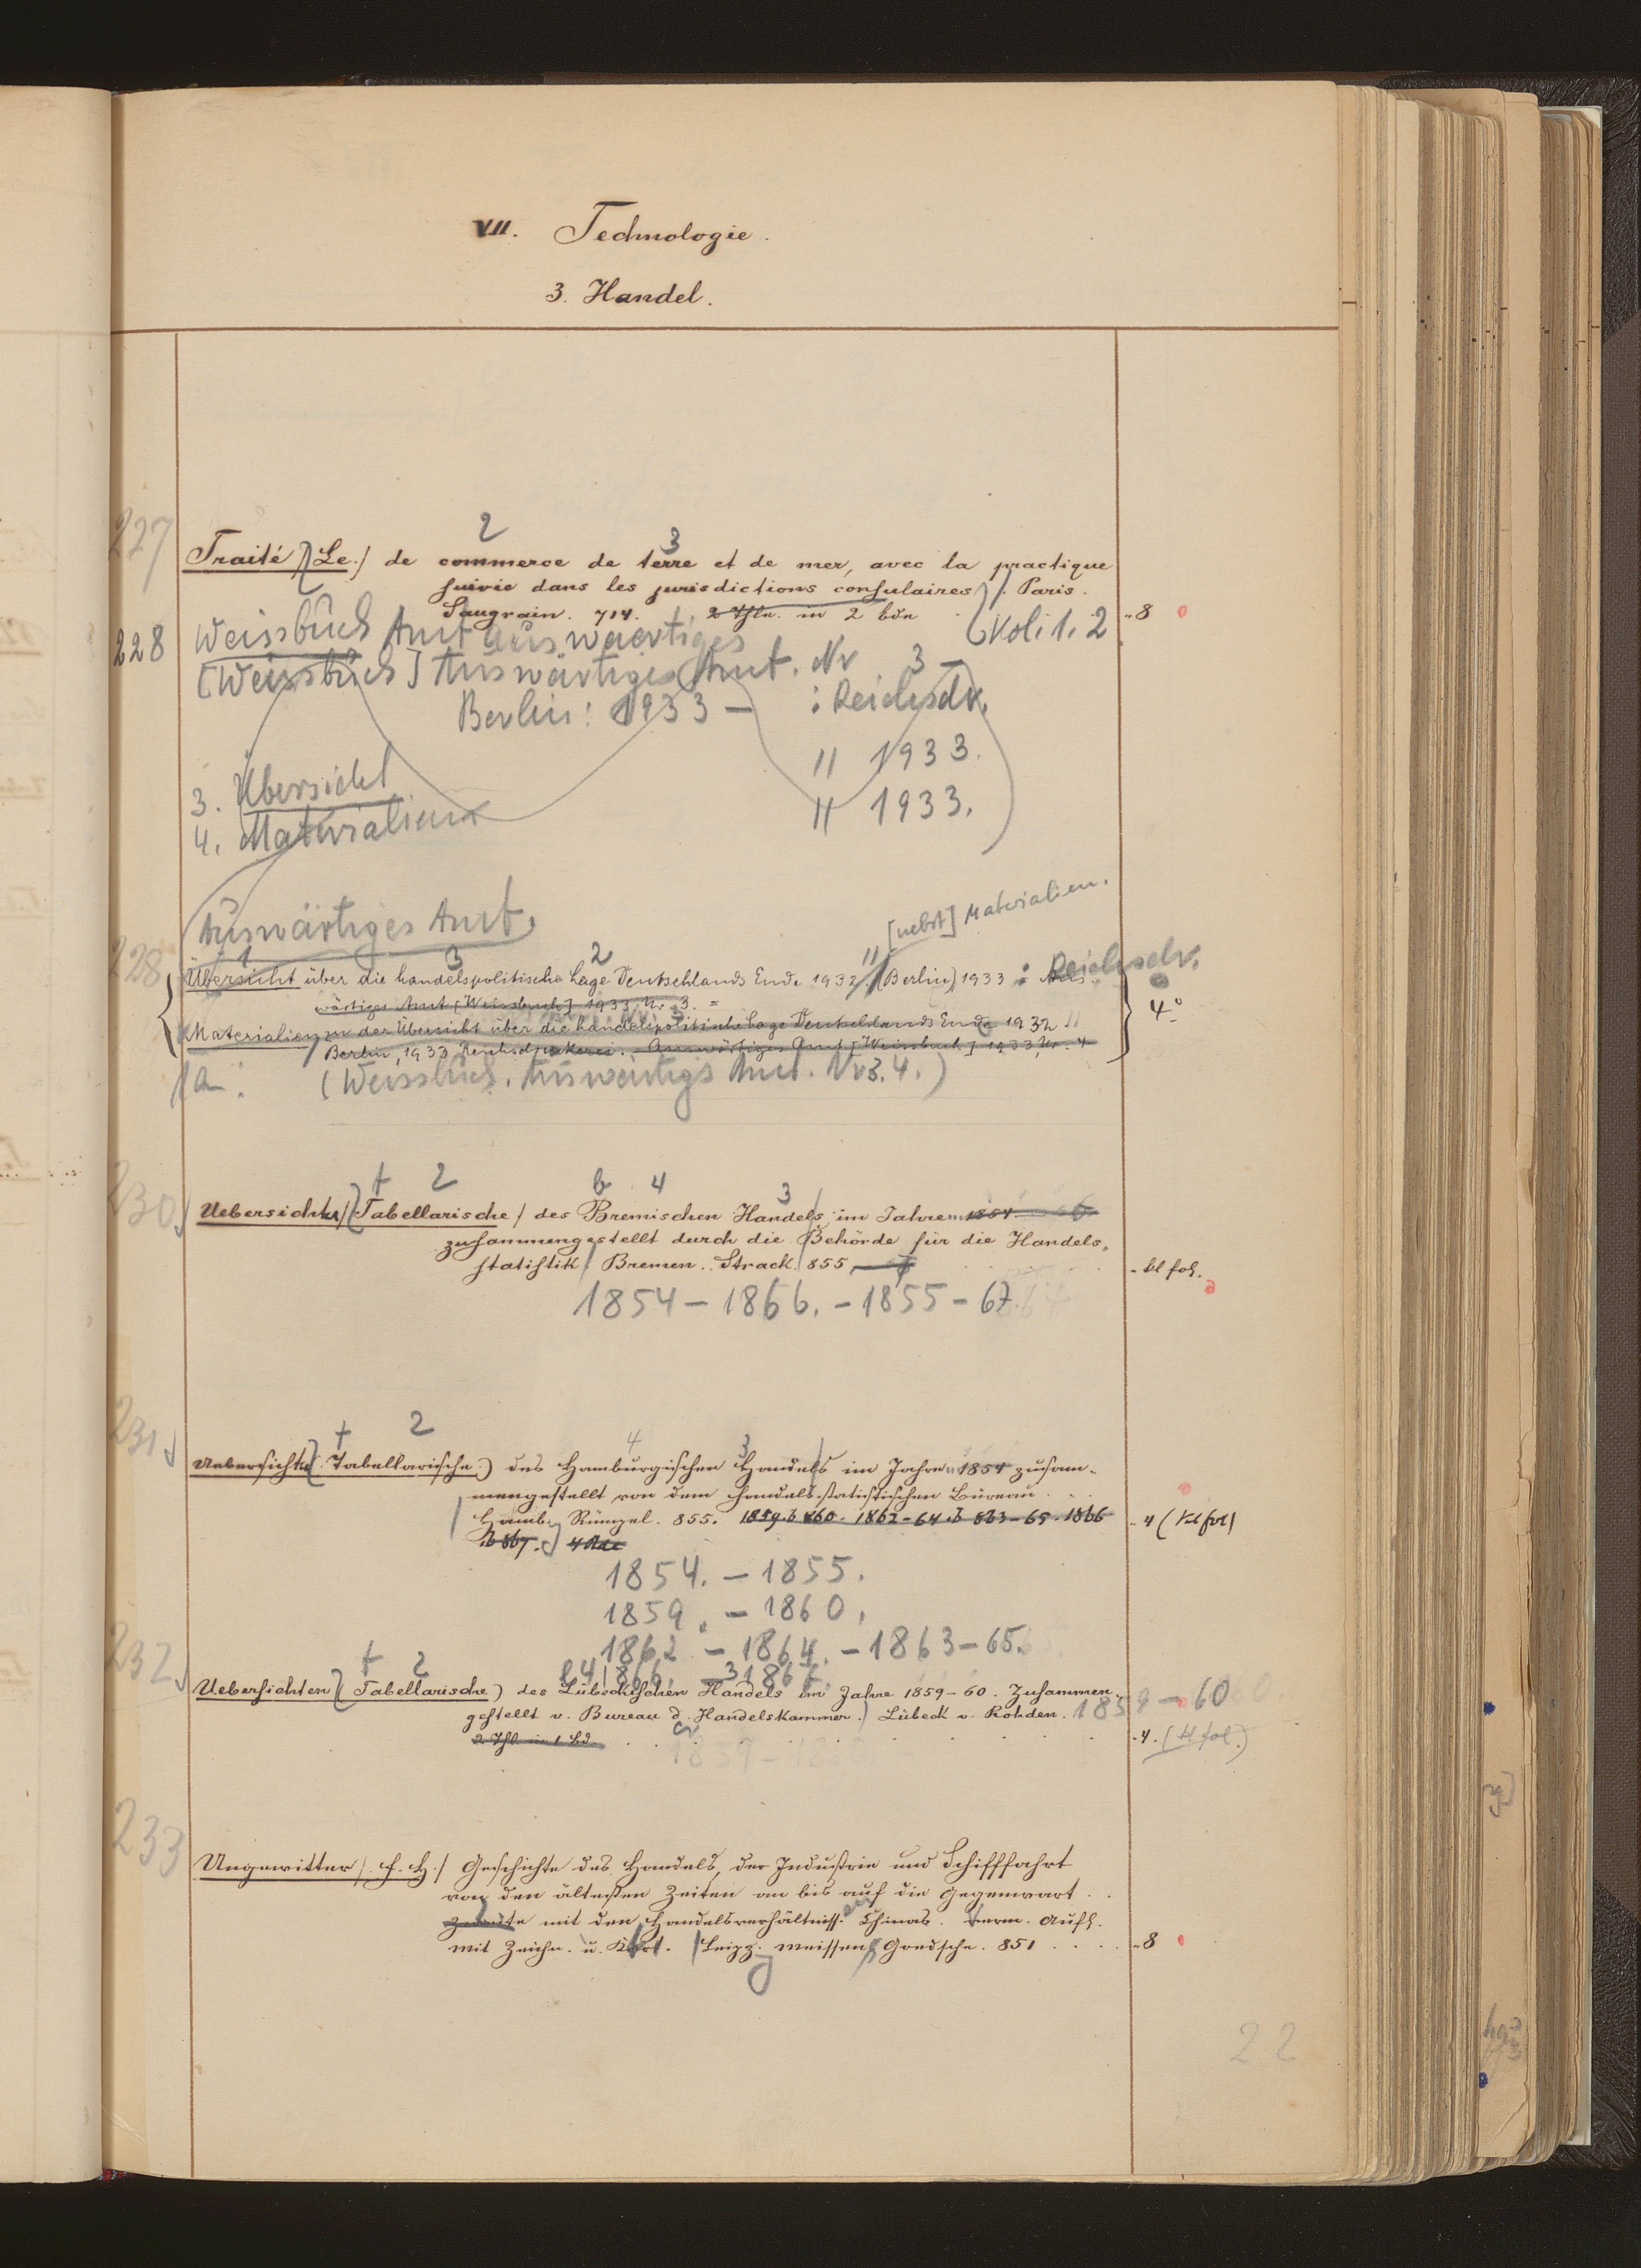 VII. Technologie.
3. Handel.
227
2 3
Traité (Le.) de commerce de terre et de mer, avec la practique
suivie dans les jurisdictions consulaires). Paris.
Saugrain. 714. 2 Thle. in 2 bde Vol. 1. 2 8
228 Weissbuch Amt auswaertiges
[Weissbuch] Auswärtiges Amt. Nr 3 –
Berlin: 1933 – : Reichsdr.
3. Übersicht 11 1933.
4. Materialien 11 1933.
Auswärtiges Amt.
[nebst] Materialien.
228 1 3 2
Übersicht über die handelspolitische Lage Deutschlands Ende 1932. (Berlin) 1933 : Reichsdr.
wärtiges Amt [Weissbuch] 1933, Nr. 3. =
4°
Materialien zu der Übersicht über die handelspolitische Lage Deutschlands Ende 1932
Berlin, 1933 Reichsdruckerei. Auswärtiges Amt [Weissbuch] 1933, Nr. 4
(Weissbuch. Auswärtigs Amt. Nr 3. 4.)
230 2 b 4 3
Uebersichten (Tabellarische) des Bremischen Handels im Jahre 1854
zusammengestellt durch die Behörde für die Handels-
statistik Bremen. Strack. 855 kl fol.
1854 – 1866. – 1855 – 67.
231 2 4 3
Uebersichten (Tabellarische.) des Hamburgischen Handels im Jahre 1854 zusam-
mengestellt von dem handelsstatistischen Büreau
Hamb. Rümpel. 855. 1859. 860. 1862 – 64. 863 – 65. 1866 4 (kl fol)
867. 4 Bde
1854. – 1855.
1859. – 1860.
1862 – 1864. – 1863 – 65.
1866. – 1867.
232 2 4 3
Uebersichten (Tabellarische) des Lübeckischen Handels im Jahre 1859 – 60. Zusammen-
gestellt v. Bureau d. Handelskammer. Lübeck v. Rohden. 1859 – 60
2 Thl in 1 Bd. 4. (kl fol.)
233
Ungewitter, F. H. Geschichte des Handels, der Industrie und Schifffahrt
von den ältesten Zeiten an bis auf die Gegenwart.
mit den Handelsverhältniss. Chinas. verm. Aufl.
mit Zeichn. u. Kart. Leipz. Meissen Goedsche. 851 8
22